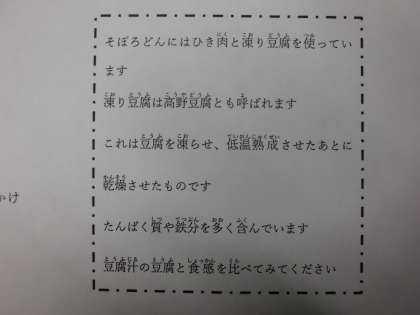 そぼろどんにはひき肉と凍り豆腐を使ってい
ます
凍り豆腐は高野豆腐とも呼ばれます
これは豆腐を凍らせ、低温熟成させたあとに
乾燥させたものです
たんぱく質や鉄分を多く含んでいます
豆腐汁の豆腐と食感を比べてみてください
いけ